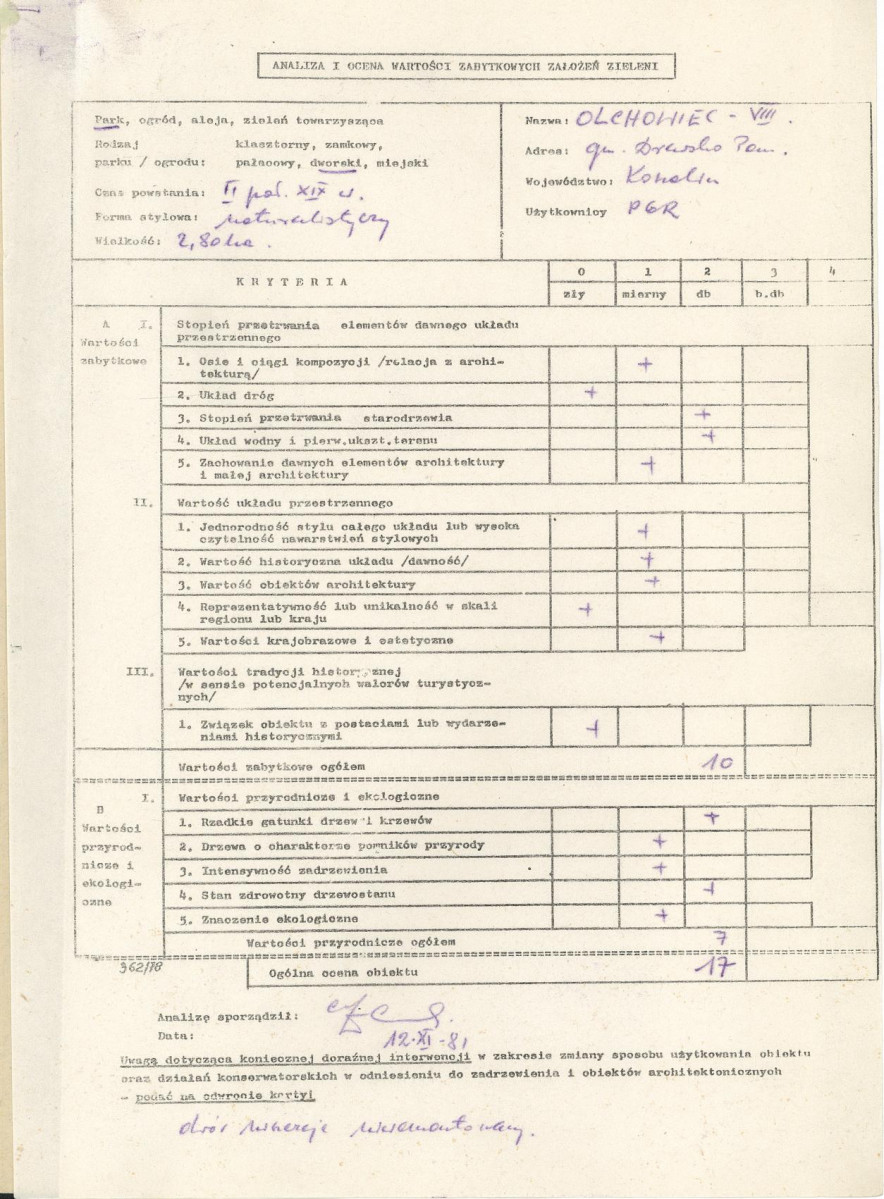 ANALIZA I OCENA WARTOŚCI ZABYTKOWYCH ZAŁOŻEŃ ZIELENI
Park, ogród, aleja, zieleń towarzysząca
Rodzaj klasztorny, zamkowy,
parku / ogrodu: pałacowy, dworski, miejski
Czas powstania: II poł. XIX w.
Forma stylowa: naturalistyczny
Wielkość: 2,80 ha.
Nazwa: OLCHOWIEC - VIII.
Adres: gm. Drawsko Pom.
Województwo: Koszalin
Użytkownicy PGR
KRYTERIA 0 1 2 3 4
zły mierny db b.db
A I. Stopień przetrwania elementów dawnego układu
Wartości przestrzennego
zabytkowe
1. Osie i ciągi kompozycji /relacja z archi-
tekturą/ +
2. Układ dróg +
3. Stopień przetrwania starodrzewia +
4. Układ wodny i pierw.ukszt.terenu +
5. Zachowanie dawnych elementów architektury
i małej architektury +
II. Wartość układu przestrzennego
1. Jednorodność stylu całego układu lub wysoka
czytelność nawarstwień stylowych +
2. Wartość historyczna układu /dawność/ +
3. Wartość obiektów architektury +
4. Reprezentatywność lub unikalność w skali
regionu lub kraju +
5. Wartości krajobrazowe i estetyczne +
III. Wartości tradycji historycznej
/w sensie potencjalnych walorów turystycz-
nych/
1. Związek obiektu z postaciami lub wydarze-
niami historycznymi +
Wartości zabytkowe ogółem 10
I. Wartości przyrodnicze i ekologiczne
B
Wartości
przyrod-
nicze i
ekologi-
czne
1. Rzadkie gatunki drzew i krzewów +
2. Drzewa o charakterze pomników przyrody +
3. Intensywność zadrzewienia +
4. Stan zdrowotny drzewostanu +
5. Znaczenie ekologiczne +
Wartości przyrodnicze ogółem 7
962/78 Ogólna ocena obiektu 17
Analizę sporządził:
Data: 12.XI-81
Uwagę dotycząca koniecznej doraźnej interwencji w zakresie zmiany sposobu użytkowania obiektu
oraz działań konserwatorskich w odniesieniu do zadrzewienia i obiektów architektonicznych
- podać na odwrocie karty!